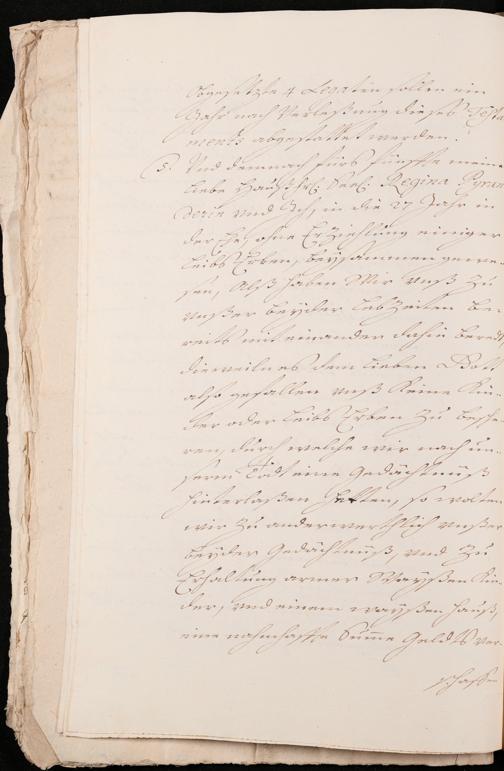 obgesetzte 4 Legaten sollen ein
Jahr nach Verlesung dieses Testa
ments abgestattet werden.
5. Und demnach fürs fünffte meine
liebe Haußfr. Seel. Regina
und Ich, in die 27 Jahr in
der Ehe, ohne Erziehlung einiger
leibs Erben, beysammen gewe-
sen, Alß haben Wir unß zu
unßer beyder Lebzeiten be-
reits mit einander dahin beredt
dieweiln es dem lieben Gott
also gefallen unß keine Kin-
der oder leibs Erben zu besche-
ren, durch welche wir nach un-
serm Todt eine Gedächtnüß
hinterlaßen hetten, so wolten
wir zu anderwerthlich unßer
beyder Gedächtnüß, und zu
Erhaltung armer Waysen Kin-
der, und einem waysen hauß,
eine nahmhaffte Summe Geldts ver-
schaffen